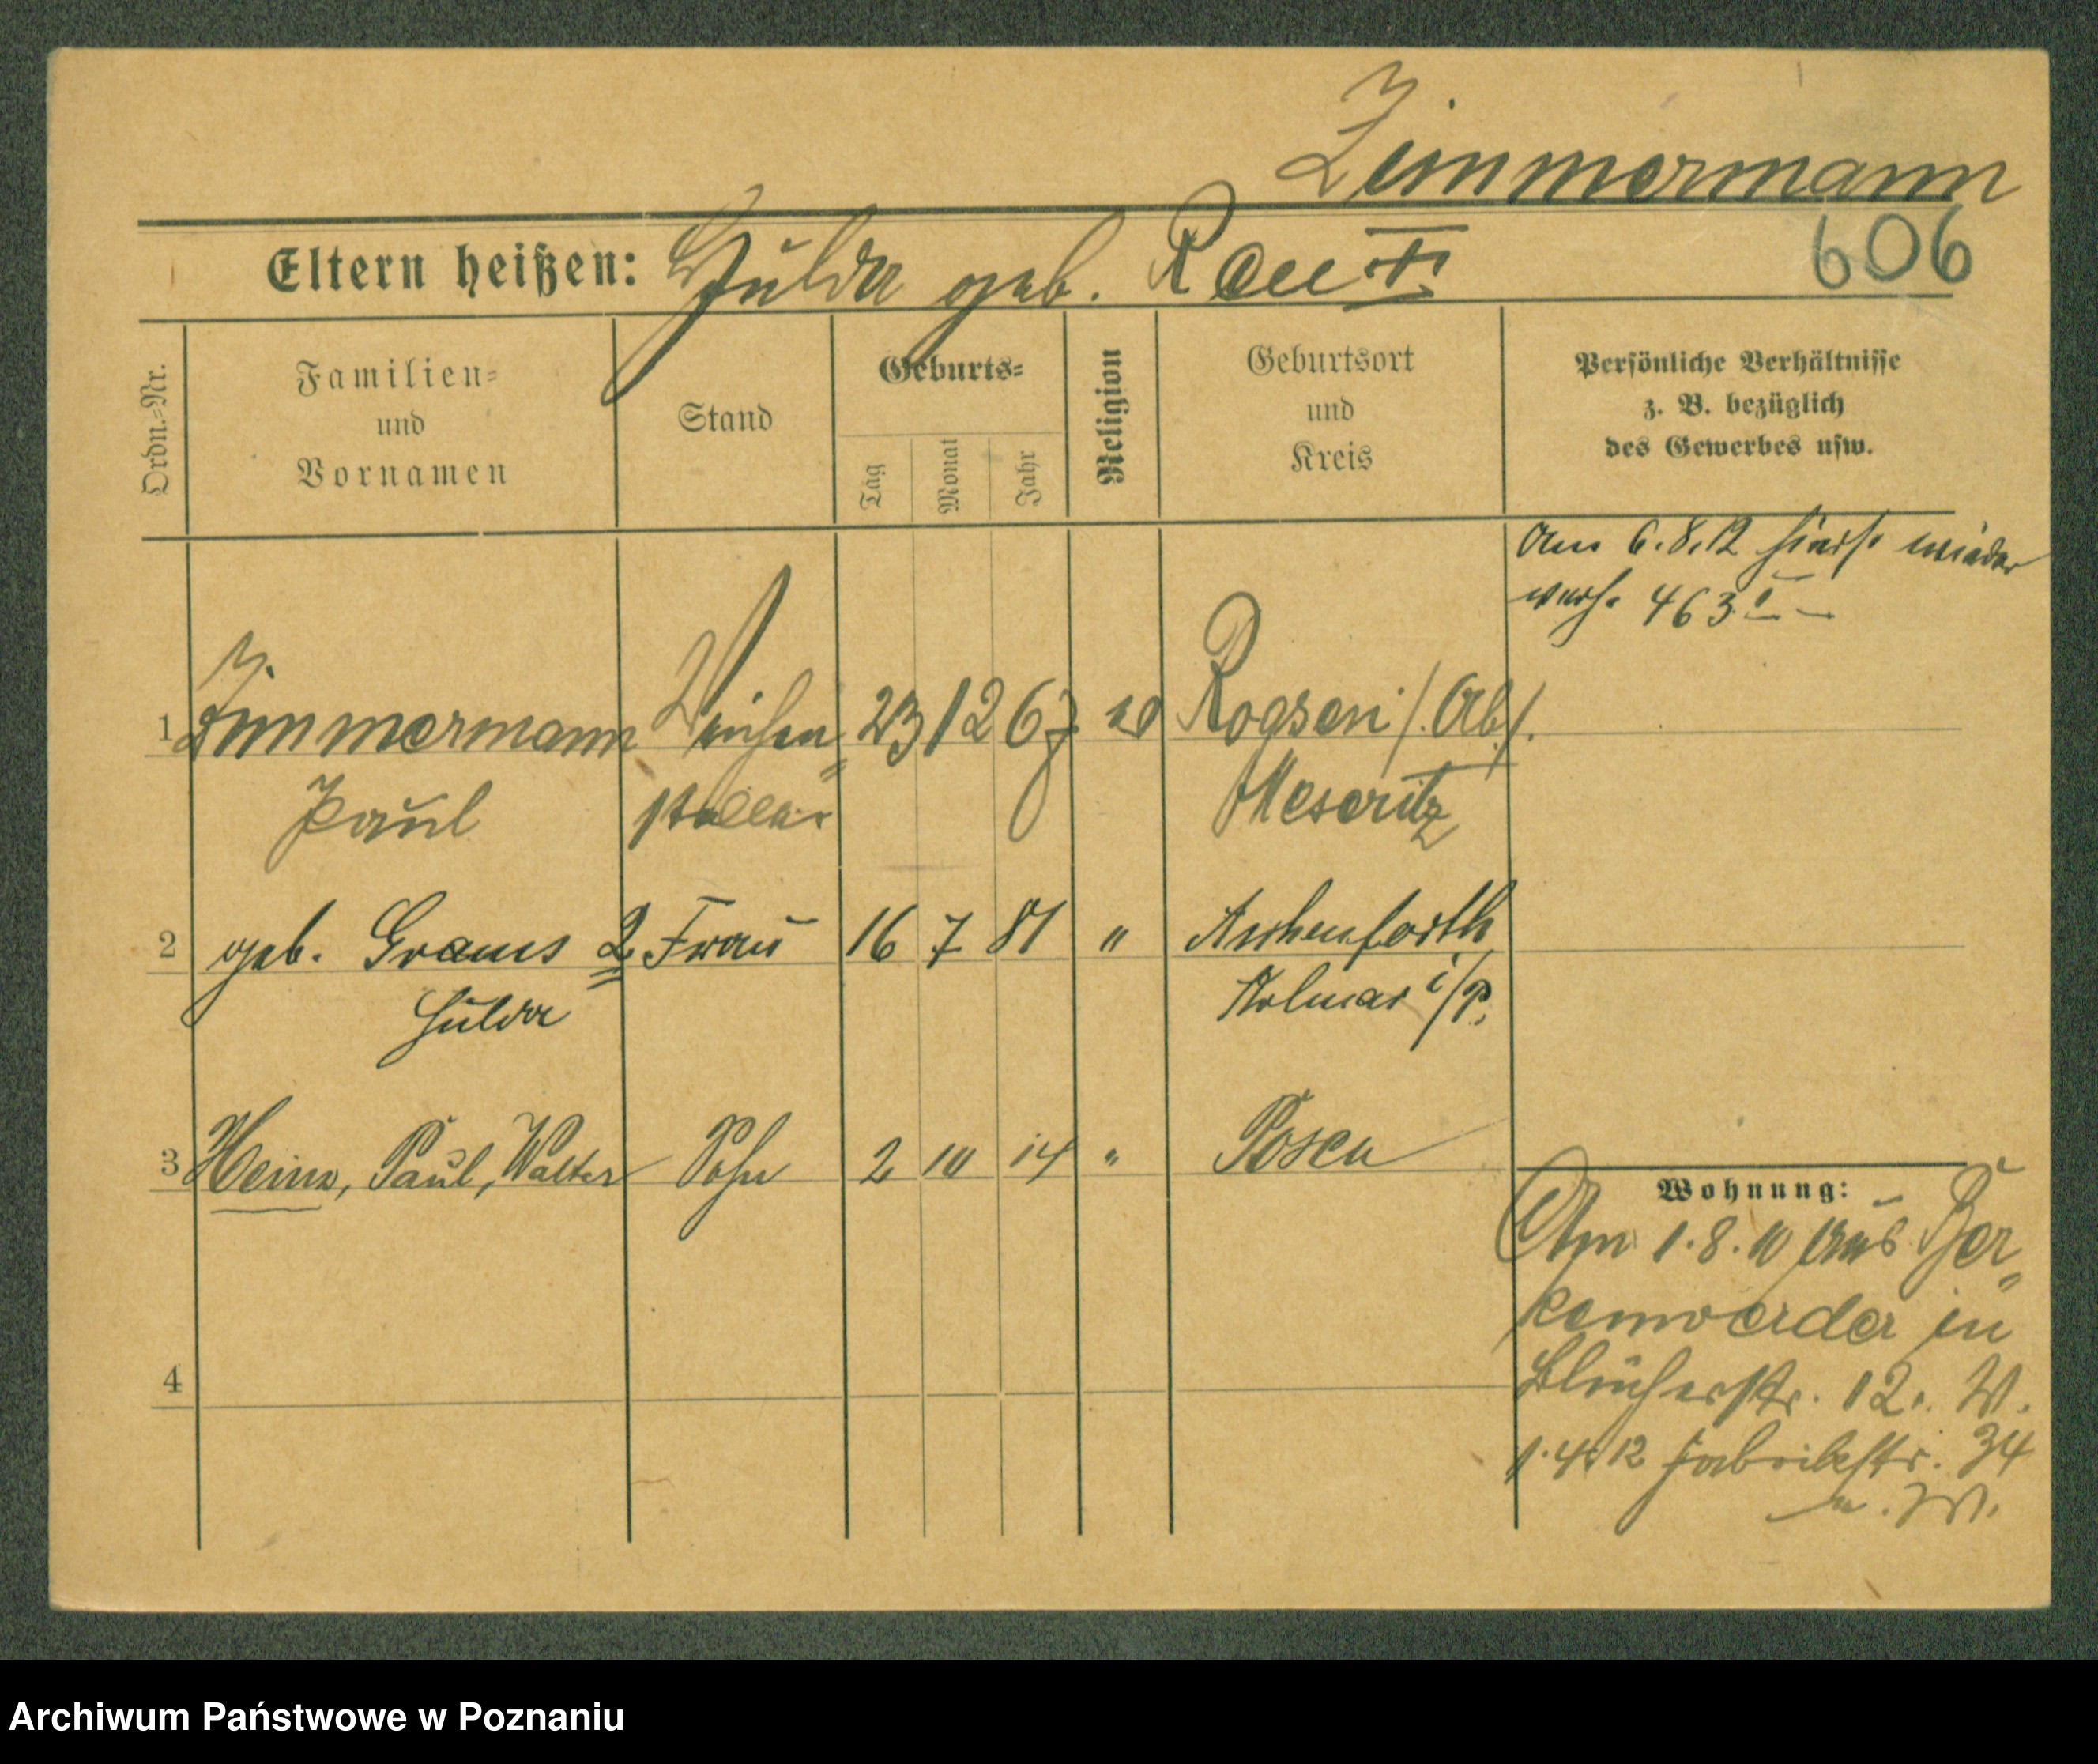 Zimmermann
606
Eltern heißen: Hulda geb. Rau †.
Ordn.=Nr.
Familien=
und
Vornamen
Stand
Geburts=
Tag
Monat
Jahr
Religion
Geburtsort
und
Kreis
Persönliche Verhältnisse
z. B. bezüglich
des Gewerbes usw.
Am 6.8.12 hierh. wieder
verh. 463 I
1 Zimmermann Weichen= 23 12 67 ev Rogsen /. Ab/.
Paul steller Meseritz
2 geb. Grams 2 Frau 16 7 81 " Aschenforth
Hulda Kolmar i/P.
3 Heinz, Paul, Walter Sohn 2 10 14 " Posen
4
Wohnung:
Am 1.8.10 aus Ber=
kenwerder in
Blücherstr. 12. W.
1.4.12 Fabrikstr. 34
n. W.
Archiwum Państwowe w Poznaniu